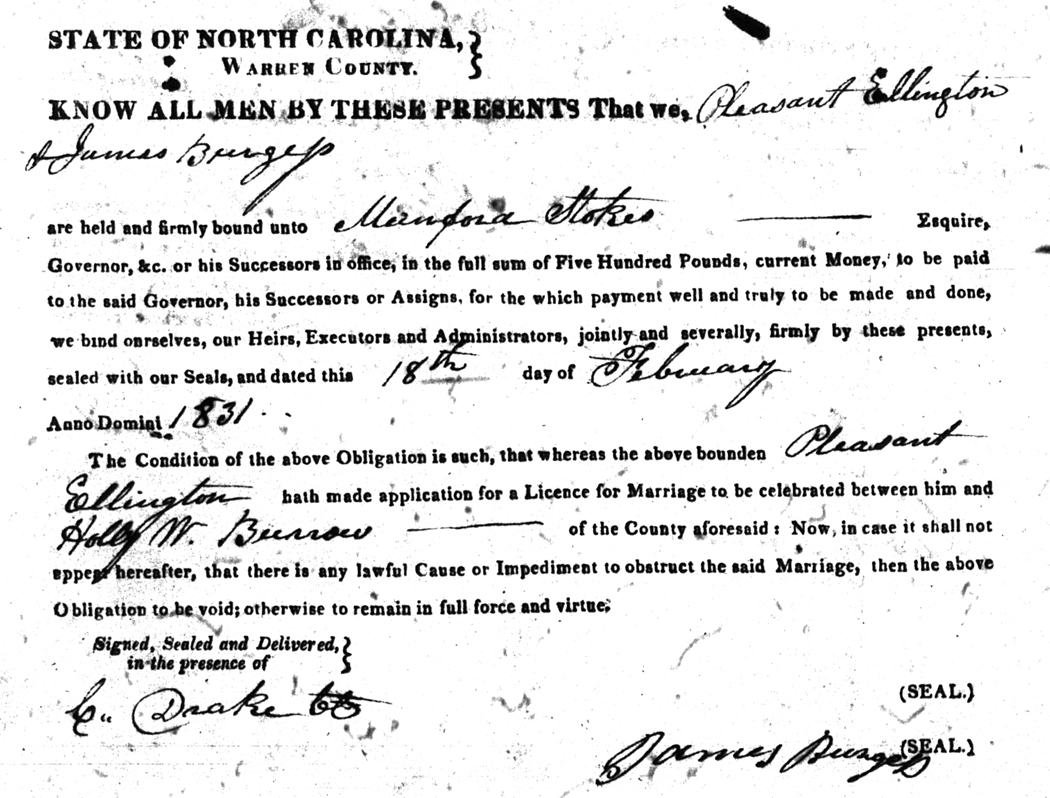 STATE OF NORTH CAROLINA, }
WARREN COUNTY.
KNOW ALL MEN BY THESE PRESENTS That we, Pleasant Ellington
& James Burgess
are held and firmly bound unto Munford Stokes Esquire,
Governor, &c. or his Successors in office, in the full sum of Five Hundred Pounds, current Money, to be paid
to the said Governor, his Successors or Assigns, for the which payment well and truly to be made and done,
we bind ourselves, our Heirs, Executors and Administrators, jointly and severally, firmly by these presents,
sealed with our Seals, and dated this 18th day of February
Anno Domini 1831
The Condition of the above Obligation is such, that whereas the above bounden Pleasant
Ellington hath made application for a Licence for Marriage to be celebrated between him and
Holly W. Burrow of the County aforesaid: Now, in case it shall not
appear hereafter, that there is any lawful Cause or Impediment to obstruct the said Marriage, then the above
Obligation to be void; otherwise to remain in full force and virtue.
Signed, Sealed and Delivered, }
in the presence of
(SEAL.)
C. Drake
James Burgess (SEAL.)